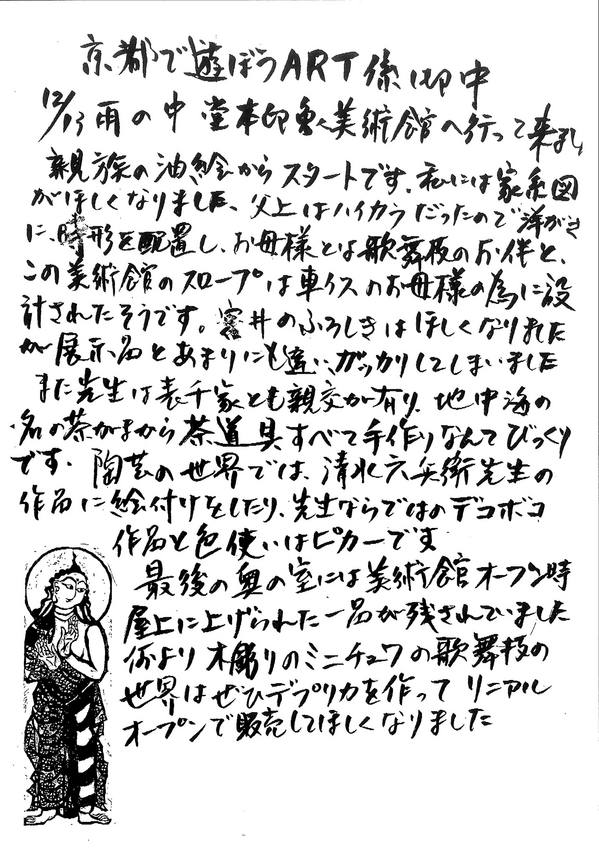 京都で遊ぼうART係御中
12/13雨の中 堂本印象美術館へ行って来ました
親族の油絵からスタートです、私には家系図
がほしくなりました、父上はハイカラだったので洋がさ
に、時形を配置し、お母様とは歌舞伎のお伴と、
この美術館のスロープは車イスのお母様の為に設
計されたそうです。窓井のふろしきはほしくなりました
が展示品とあまりにも違い、ガッカリしてしまいました
また先生は表千家とも親交が有り、地中海の
名の茶がまから茶道具すべて手作りなんてびっくり
です。陶芸の世界では、清水六兵衛先生の
作品に絵付けをしたり、先生ならではのデコボコ
作品と色使いはピカ一です
最後の奥の室には美術館オープン時
屋上に上げられた一品が残されていました
何より木彫りのミニチュワの歌舞伎の
世界はぜひデプリカを作ってリニアル
オープンで販売してほしくなりました